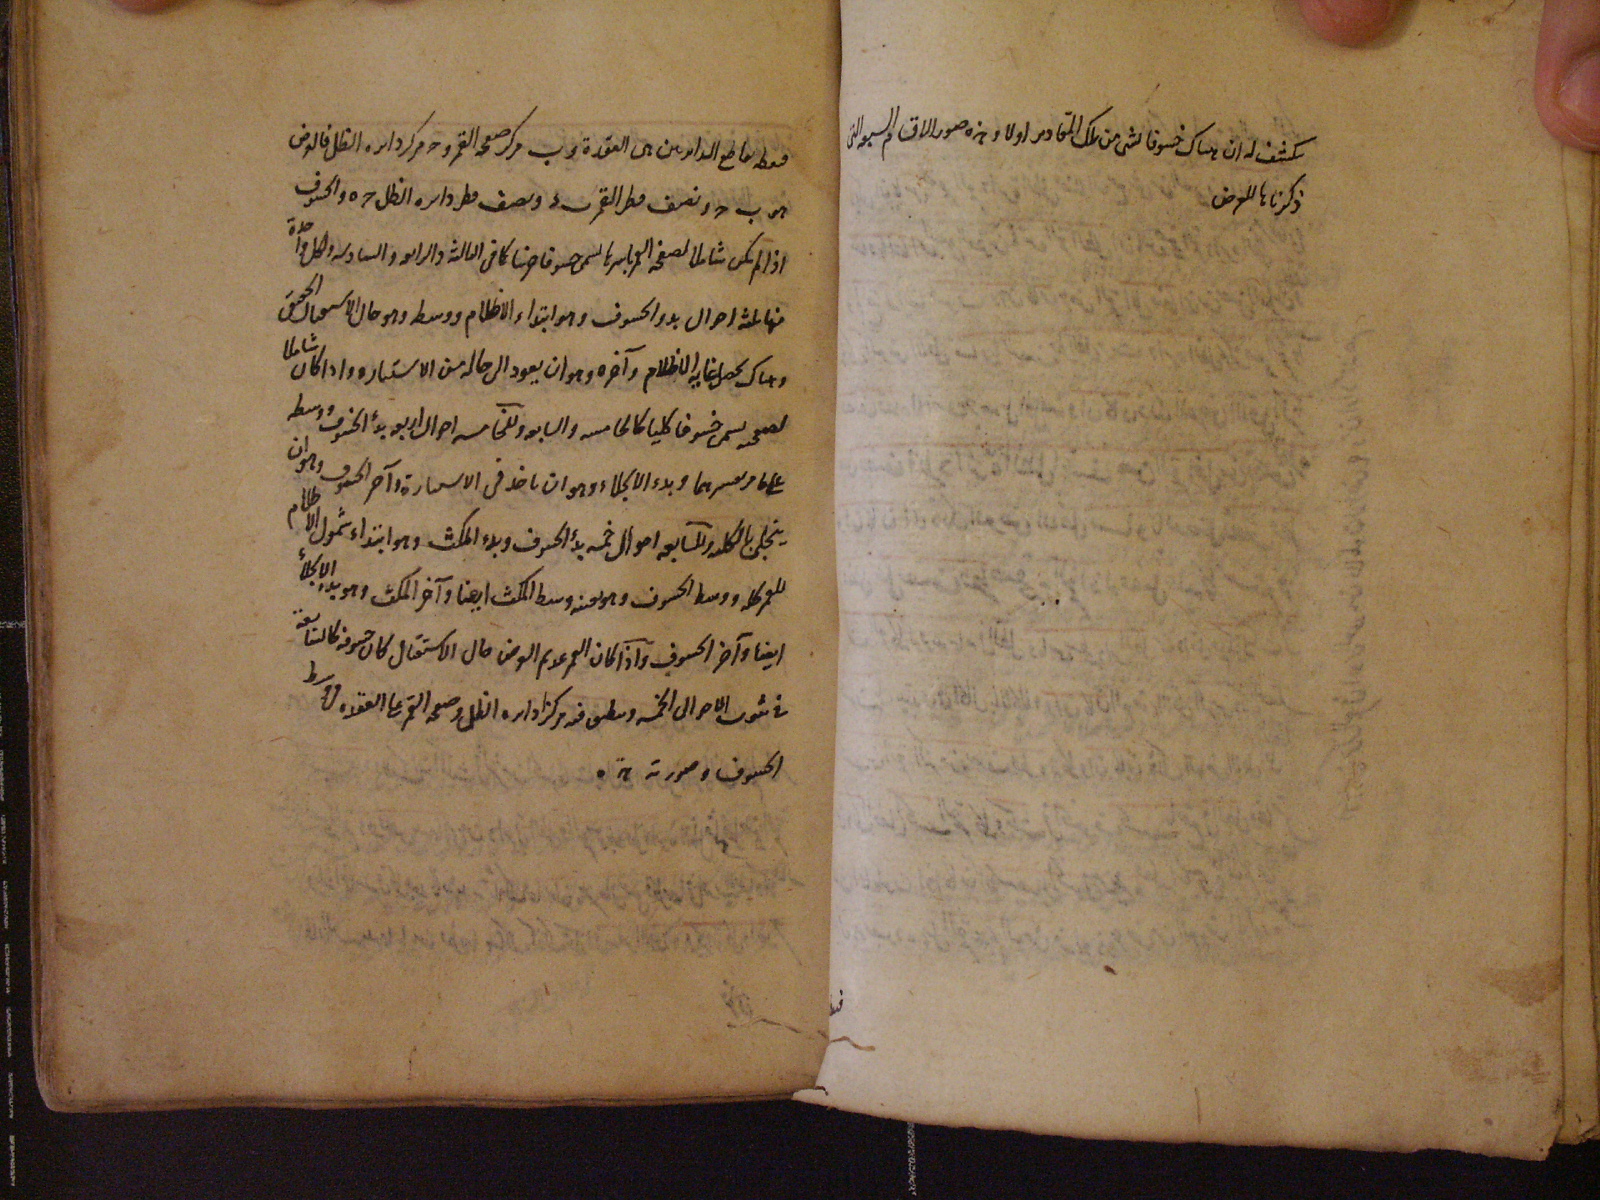 يكشف له ان هناك خسوفا لشئ من تلك المقادير اولا وهذه صور الاقسام السبعة التى
ذكرناها للعرض
فنقطه تقاطع الدايرتين هى العقدة و ب مركز صفحه القمر و ح مركز دايره الظل فالعرض
هو ب ح ونصف قطر القمر ب ء ونصف قطر دايره الظل ح ه والخسوف
اذا لم يكن شاملا لصفحه القمر باسرها لسمى خسوفا جزئيا كما فى الثالثه والرابعه والسادسه ولكل واحدة
منها ثلثه احوال بدو الخسوف وهو ابتداء الاظلام ووسطه وهو حال الاستقبال الحقيقى
وهناك يحصل غايه الاظلام وآخره وهو ان يعود الى حاله من الاستناره واذا كان شاملا
لصفحته يسمى خسوفا كليا كالخامسه والسابعه وللخامسه احوال اربعه بدأ الخسوف ووسطه
على ما مر تفسيرهما وبدء الانجلاء وهو ان ياخذ فى الاستنارة وآخر الخسوف وهو ان
ينجلى بالكليه وللسابعه احوال خمسه بدأ الخسوف وبدء المكث وهو ابتداء شمول الاظلام
للقمر كله ووسط الخسوف وهو بعينه وسط المكث ايضا وآخر المكث وهو بدء الانجلاء
ايضا وآخر الخسوف واذا كان القمر عديم العرض حال الاستقبال كان خسوفه كالسابعة
فى ثبوت الاحوال الخمسه وينطبق فيه مركزا دايره الظل وصفحه القمر على العقده فى وسط
الخسوف وصورته هذه